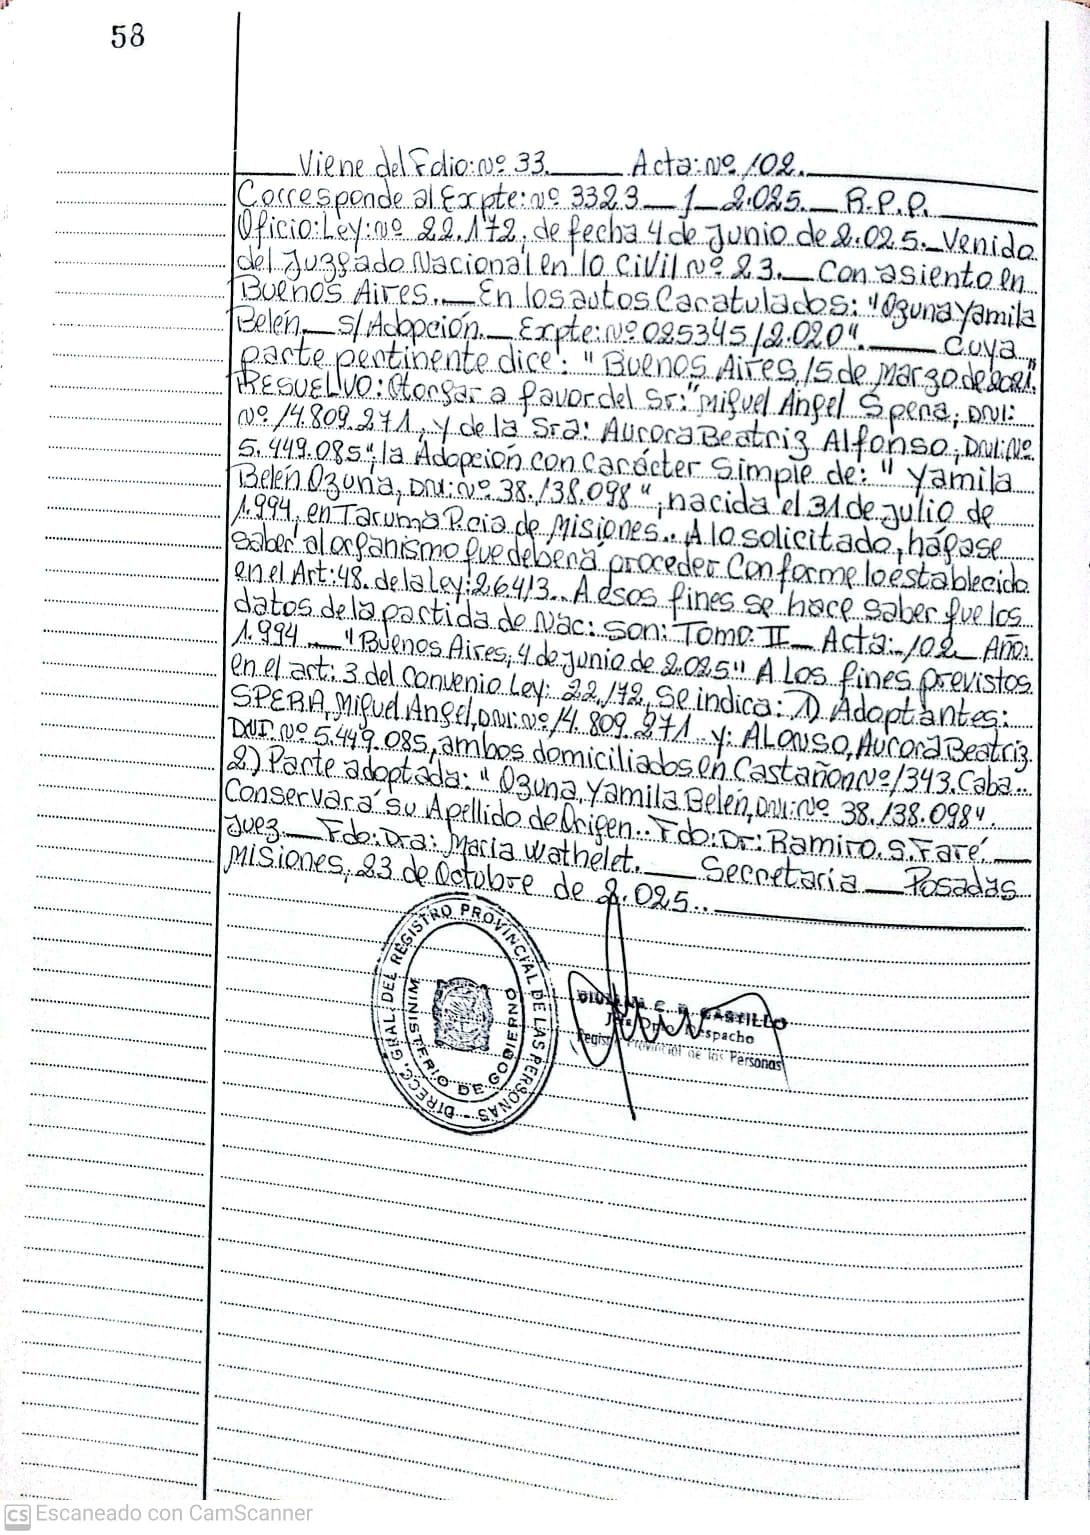 58
Viene del Folio: Nº 33.___ Acta: Nº 102.
Corresponde al Expte: Nº 3323 _ 1 _ 2.025. _ R.P.P.
Oficio: Ley: Nº 22.172, de fecha 4 de Junio de 2.025._ Venido
del Juzgado Nacional en lo Civil Nº 23. _ Con asiento en
Buenos Aires. _ En los autos Caratulados: "Ozuna Yamila
Belén _ S/Adopción. _ Expte: Nº 025345/2.020". ___ Cuya
parte pertinente dice: "Buenos Aires, 15 de Marzo de 2021".
RESUELVO: Otorgar a favor del Sr: "Miguel Angel Spera, DNI:
Nº 14.809.271, y de la Sra: Aurora Beatriz Alfonso, DNI: Nº
5.449.085", la Adopción con carácter Simple de: "Yamila
Belén Ozuna, DNI: Nº 38.138.098", nacida el 31 de Julio de
1.994, en Taruma Pcia de Misiones.. A lo solicitado, hágase
saber al organismo que deberá proceder Conforme lo establecido
en el Art: 48. de la Ley: 26413.. A esos fines se hace saber que los
datos de la partida de Nac: Son: Tomo: II _ Acta: 102 Año:
1.994 _ "Buenos Aires, 4 de Junio de 2.025" A Los fines previstos
en el art: 3 del Convenio Ley: 22.172, Se indica: 1) Adoptantes:
SPERA, Miguel Angel, DNI: Nº 14.809.271 y: ALONSO, Aurora Beatriz
DNI: Nº 5.449.085, ambos domiciliados en Castañon Nº 1343. Caba..
2.) Parte adoptada: "Ozuna, Yamila Belén, DNI: Nº 38.138.098".
Conservará su Apellido de Origen.. Fdo: Dr: Ramiro. S. Faré. __
Juez. _ Fdo: Dra: Maria Wathelet. __ Secretaria _ Posadas
Misiones, 23 de Octubre de 2.025..
DIRECC. GRAL. DEL REGISTRO PROVINCIAL DE LAS PERSONAS
MINISTERIO DE GOBIERNO
E. D. CASTILLO
Dpto Despacho
Registro Provincial de las Personas
CS Escaneado con CamScanner